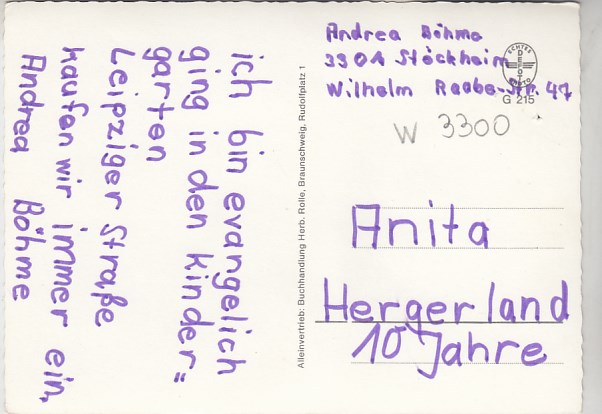 ich bin evangelich
ging in den Kinder=
garten
Leipziger Straße
kaufen wir immer ein,
Andrea Böhme
Alleinvertrieb: Buchhandlung Herb. Rolle, Braunschweig, Rudolfplatz 1
Andrea Böhme
3301 Stöckheim
Wilhelm Raabe-Str. 47
ECHTES
FOTO
G 215
W 3300
Anita
Hergerland
10 Jahre